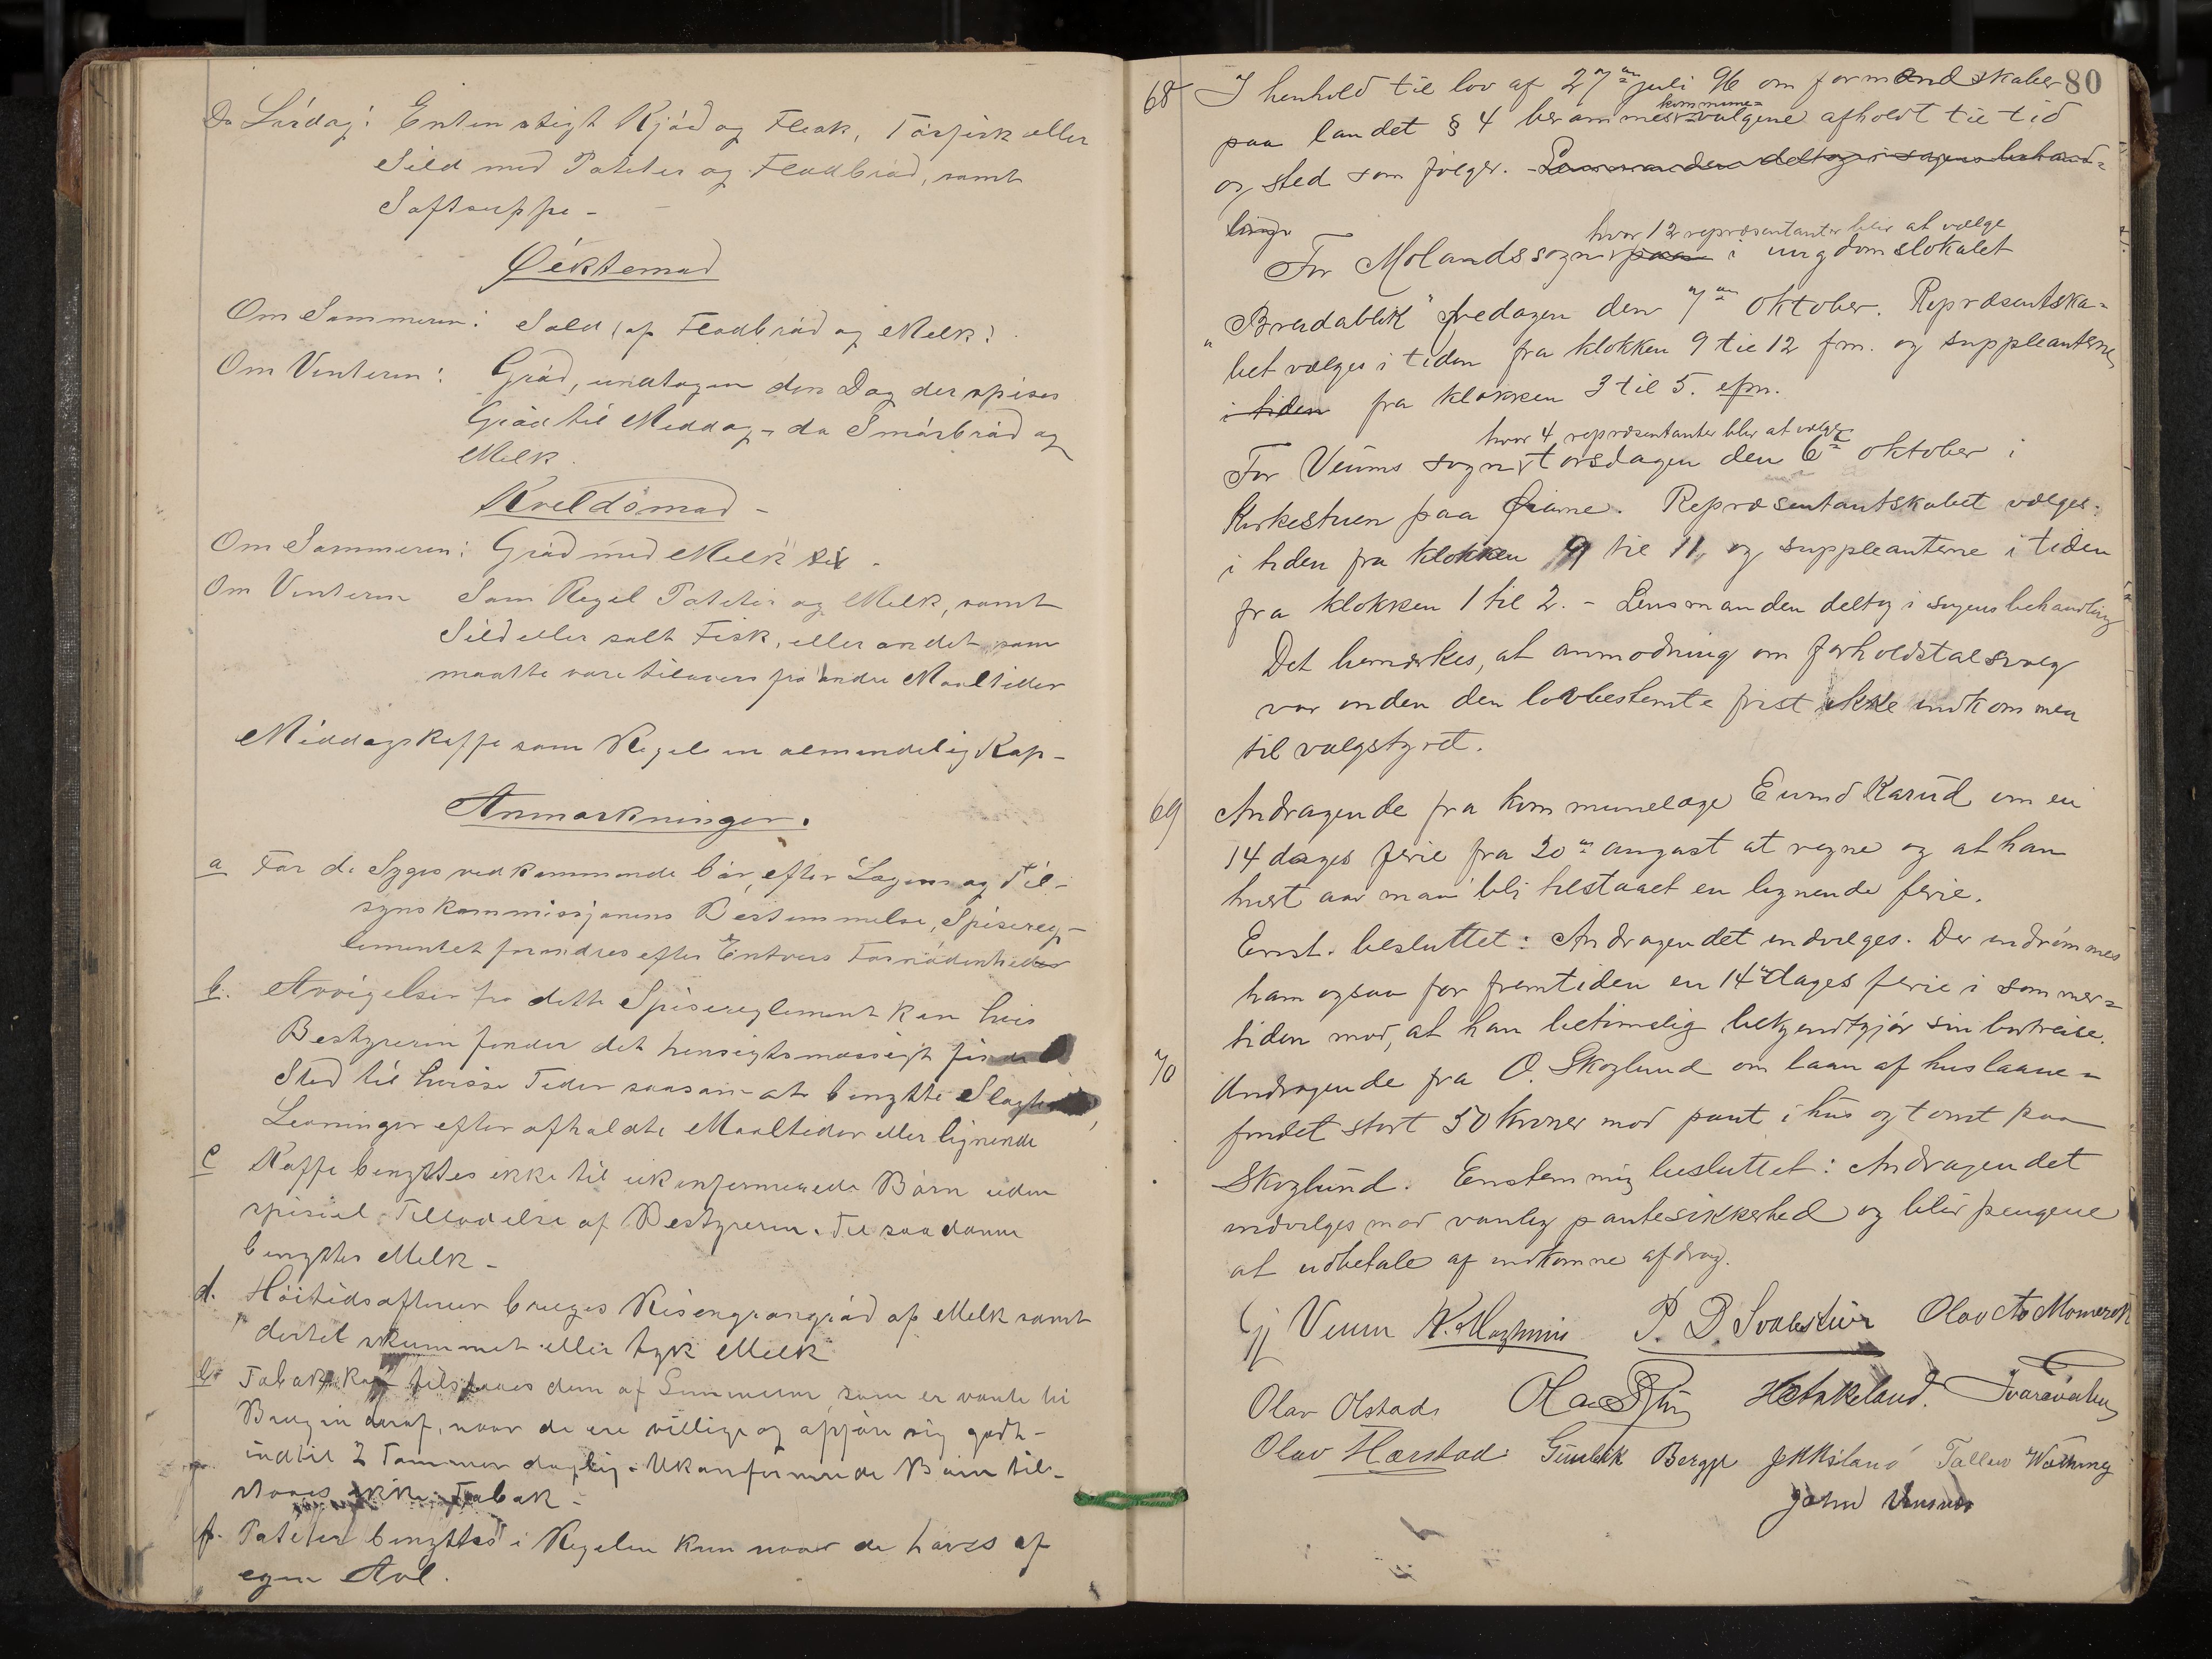 Do Lørdag: Enten stegt Kjød og Flesk, Tørfisk eller
Sild med Poteter og Fladbrød, samt
Saftsuppe -
Øiktemad
Om Sommeren: Sold (af Fladbrød og Melk)
Om Vinteren: Grød, undtagen den Dag der spises
Grød til Middag, da Smørbrød og
Melk.
Kveldsmad -
Om Sommeren: Grød med Melk til -
Om Vinteren Som Regel Poteter og Melk, samt
Sild eller salt Fisk, eller andet som
maatte være tilovers fra andre Maaltider
Middagskaffe som Regel en almindelig Kop -
Anmærkninger.
a For de Syges vedkommende bør, efter Lægens og Til-
synskommissjonens Bestemmelse, Spisereg-
lementet forandres efter Enhvers Fornødenheder
b. Avvigelser fra dette Spisereglement kan hvis
Bestyreren finder det hensigtsmæssigt finde
Sted til hvisse Tider saasom at benytte
Levninger efter afholdte Maaltider eller lignende
c Kaffe benyttes ikke til ukonfirmerede Børn uden
spesiel Tilladelse af Bestyreren. Til saadanne
benyttes Melk -
d. Høitidsaftener bruges Risengrynsgrød af Melk samt
dertil skummet eller tyk Melk
e. Tobak kan tilstaaes dem af Lemmerne, som er vante til
Brugen deraf, naar de ere villige og opføre sig godt -
indtil 2 Tommer daglig. Ukonfirmerede Børn til-
staaes ikke Tobak -
f. Poteter benyttes i Regelen kun naar de haves af
egen Avl.
80
68 I henhold til lov af 27de juli 96 om formandskaber
paa landet § 4 berammes kommune=valgene afholdt til tid
og sted som følger. Lensmanden deltog i sagens behand=
ling
hvor 12 repræsentanter blir at vælge
For Molands sogn paa i ungdomslokalet
"Breidablik" fredagen den 7de oktober. Repræsentska=
bet vælges i tiden fra klokken 9 til 12 fm. og suppleanterne
i tiden fra klokken 3 til 5. efm.
hvor 4 repræsentanter blir at vælge
For Veums sogn torsdagen den 6te oktober i
Kirkestuen paa Øiane. Repræsentantskabet vælges
i tiden fra klokken 9 til 11, og suppleanterne i tiden
fra klokken 1 til 2. - Lensmanden deltog i sagens behandling
Det bemærkes, at anmodning om forholdstalsvalg
var inden den lovbestemte frist ikke indkommen
til valgstyret.
69 Andragende fra kommunelæge Eivind Karud om en
14 dages ferie fra 20de august at regne og at han
hvert aar maa bli tilstaaet en lignende ferie.
Enst. besluttet: Andragendet indvilges. Der indrømmes
ham ogsaa for fremtiden en 14 dages ferie i sommer=
tiden mod, at han betimelig bekjendtgjør sin bortreise.
70 Andragende fra O. Skoglund om laan af huslaane=
fondet stort 50 kroner mod pant i hus og tomt paa
Skoglund. Enstemmig besluttet: Andragendet
indvilges mod vanlig pantesikkerhed og blir pengene
at udbetale af indkomne afdrag.
Veum P. D. Olav
Olav Olstad
Olav Hærstad Gunleik Berge Tallev
John